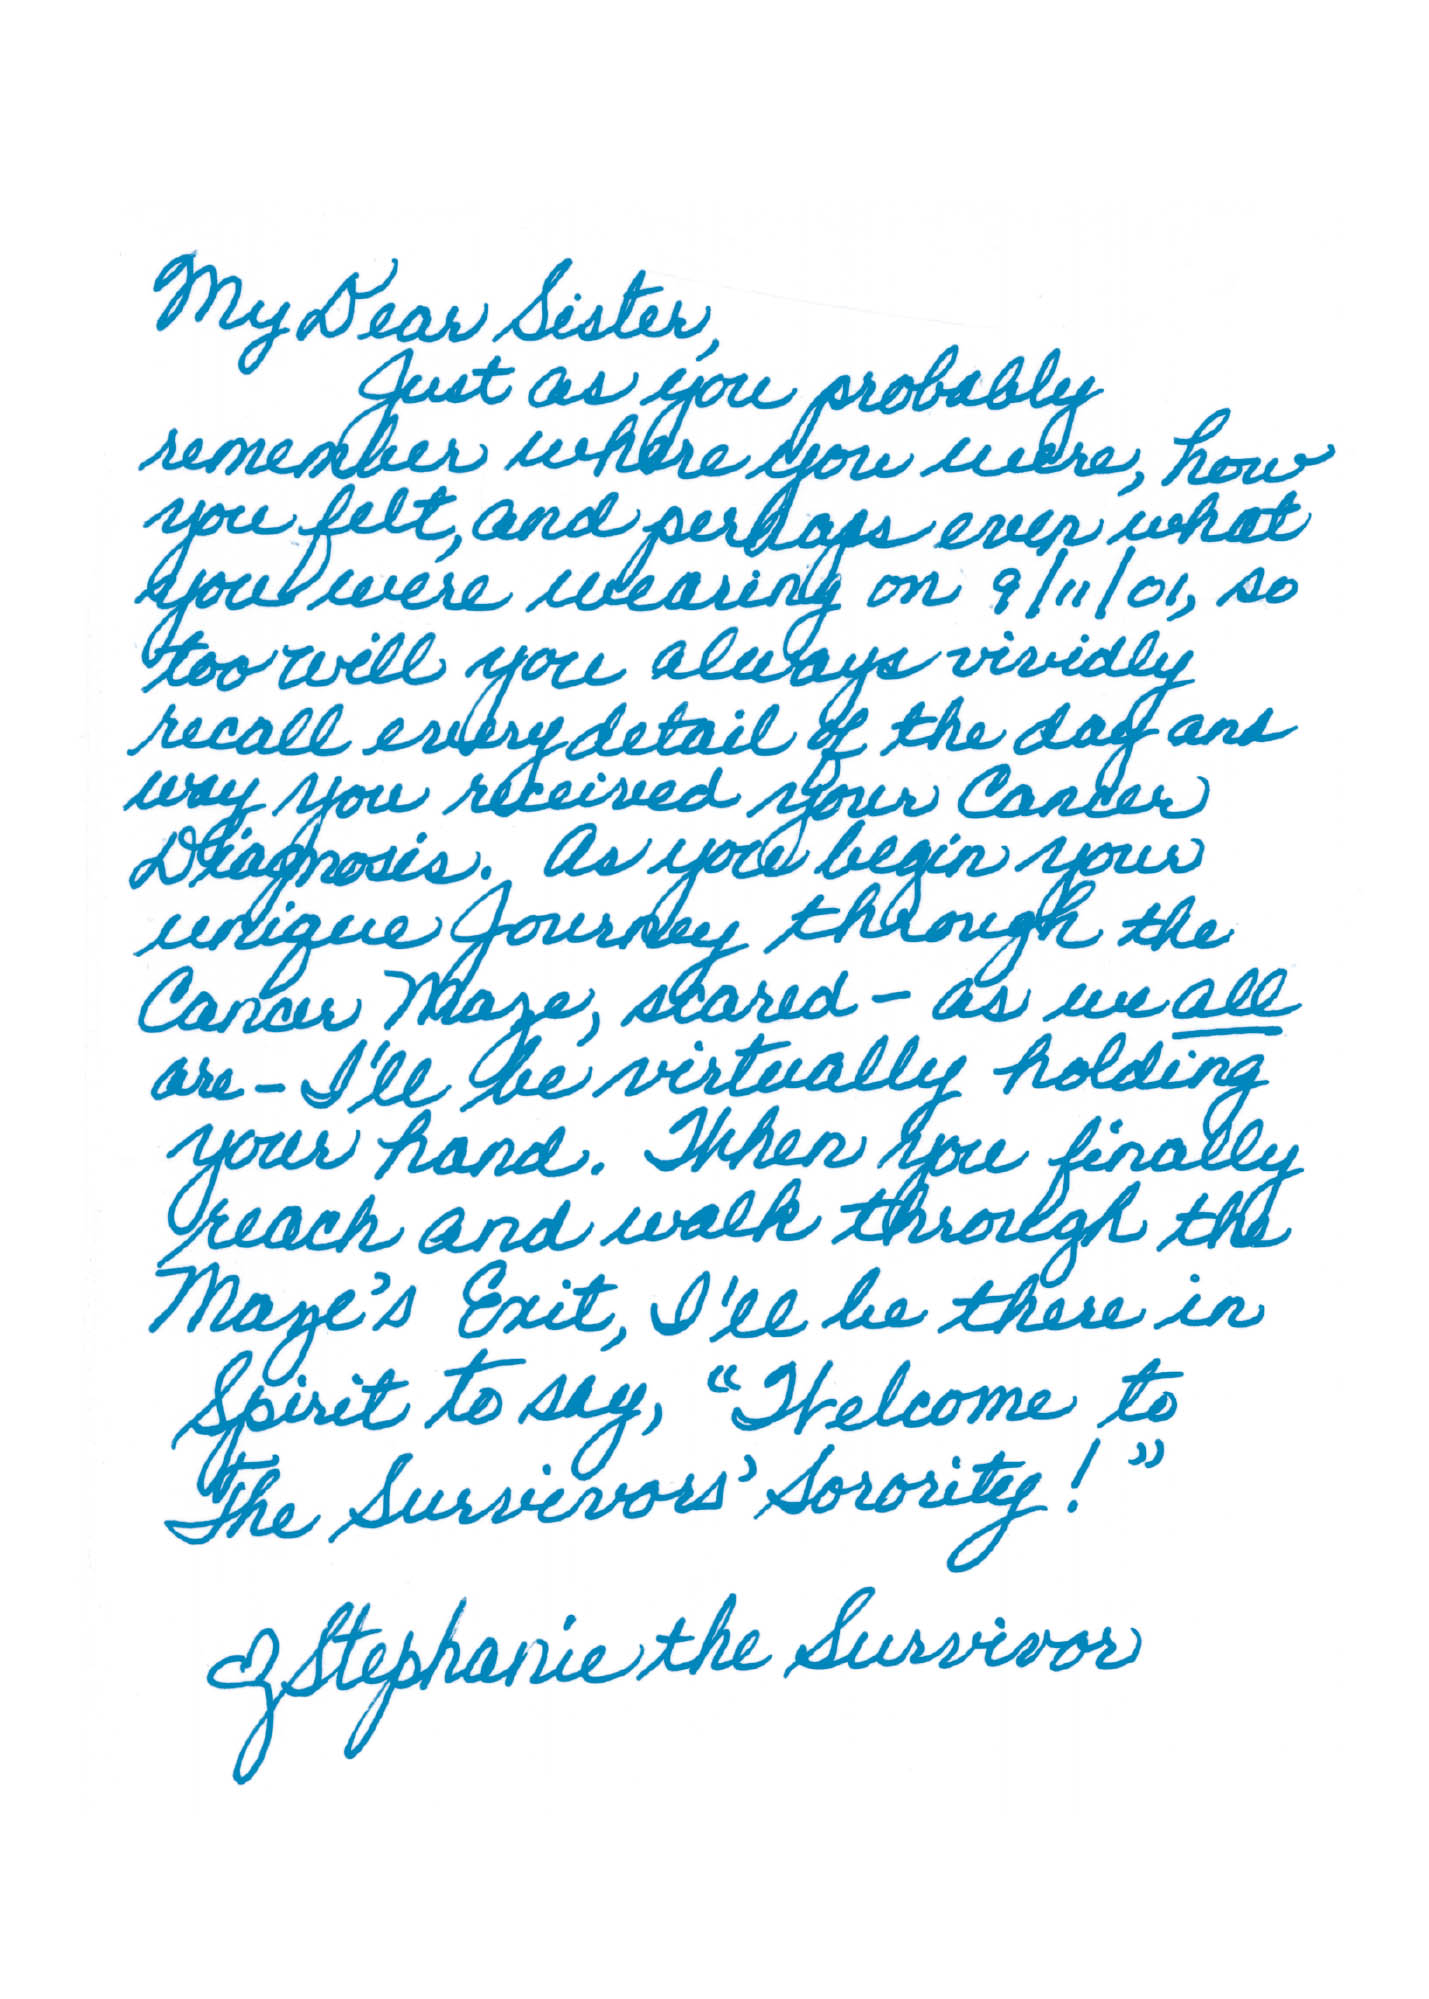 My Dear Sister,
Just as you probably
remember where you were, how
you felt, and perhaps even what
you were wearing on 9/11/01, so
too will you always vividly
recall every detail of the day and
way you received your Cancer
Diagnosis. As you begin your
unique Journey through the
Cancer Maze, scared – as we all
are – I'll be virtually holding
your hand. When you finally
reach and walk through the
Maze's Exit, I'll be there in
Spirit to say, “Welcome to
The Survivors' Sorority!”
♡ Stephanie the Survivor